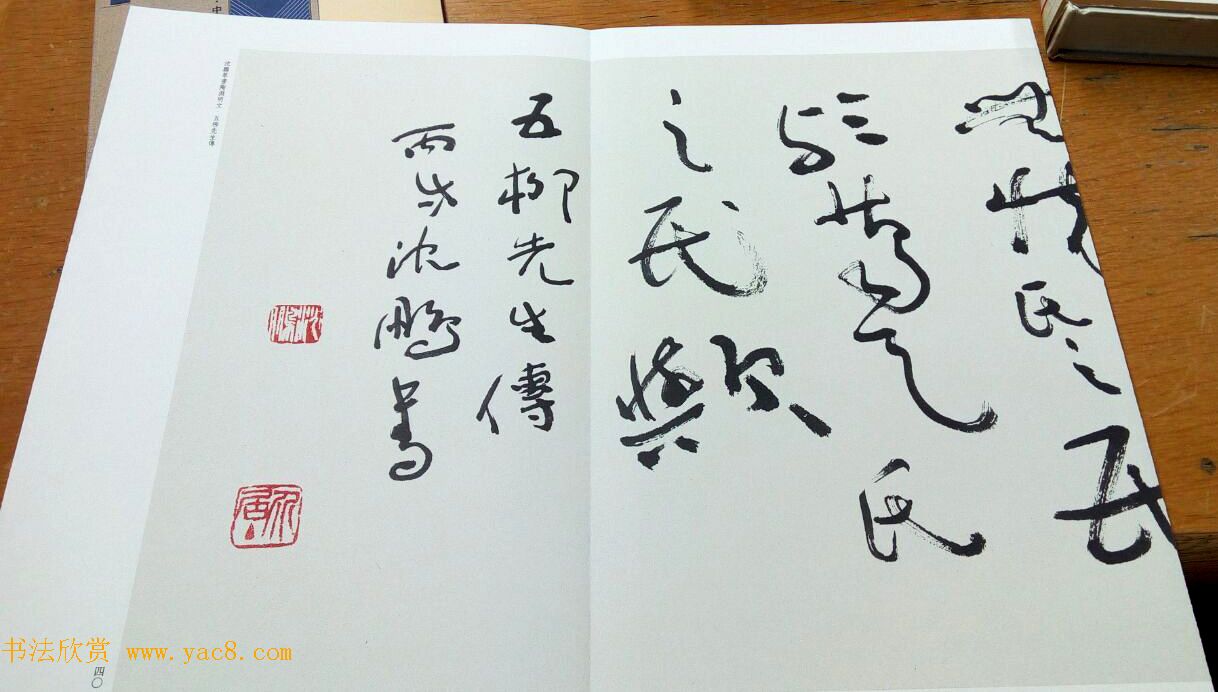 無懷氏之民
歟葛天氏
之民歟
五柳先生傳
丙戌沈鵬書
沈鵬
沈鵬草書陶淵明文 五柳先生傳
四〇
书法欣赏 www.yac8.com